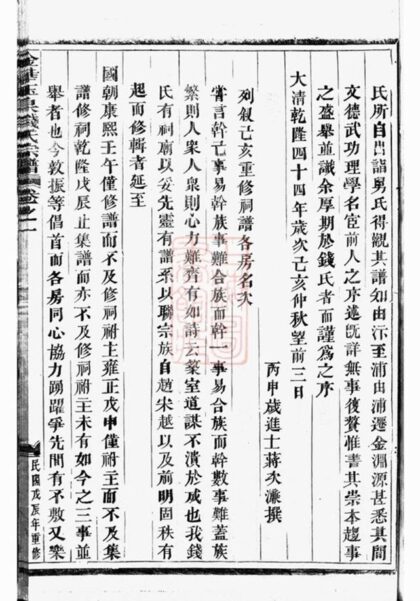 氏所自出詣舅氏得觀其譜知由汴至浦由浦遷金淵源甚悉其間
文德武功理學名宦前人之序述旣詳無事後贅惟書其崇本趨事
之盛舉並識余厚期於錢氏者而謹爲之序
大清乾隆四十四年歲次己亥仲秋望前三日
丙申歲進士蔣次濂撰
列叙己亥重修祠譜各房名次
嘗言幹己事易幹族事難合族而幹一事易合族而幹數事難蓋族
繁則人衆人衆則心力難齊有如詩云築室道謀不潰於成也我錢
氏有祠廟以妥先靈有譜系以聯宗族自趙宋越以及前明固秩有
起而修輯者延至
國朝康熙壬午僅修譜而不及修祠祔主雍正戊申僅祔主而不及集
譜修祠乾隆戊辰止集譜而亦不及修祠祔主未有如今之三事並
舉者也今敦振等倡首而各房同心協力踴躍爭先間有不敷又樂
錢氏宗譜 卷之一
民國戊辰年重修